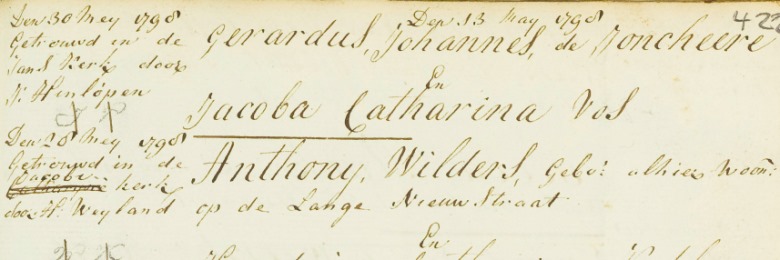 Den 13 May 1798
422
Den 30 Mey 1798
Getrouwd in de
Jans Kerk door
P. Hinlópen
Gerardus, Johannes, de Joncheere
En
Jacoba Catharina Vos
Den 28 Mey 1798
Getrouwd in de
Jacobi
kerk
door H: Weyland
Anthony, Wilders, Gebo: alhier woon:
op de Lange Nieuw Straat
En